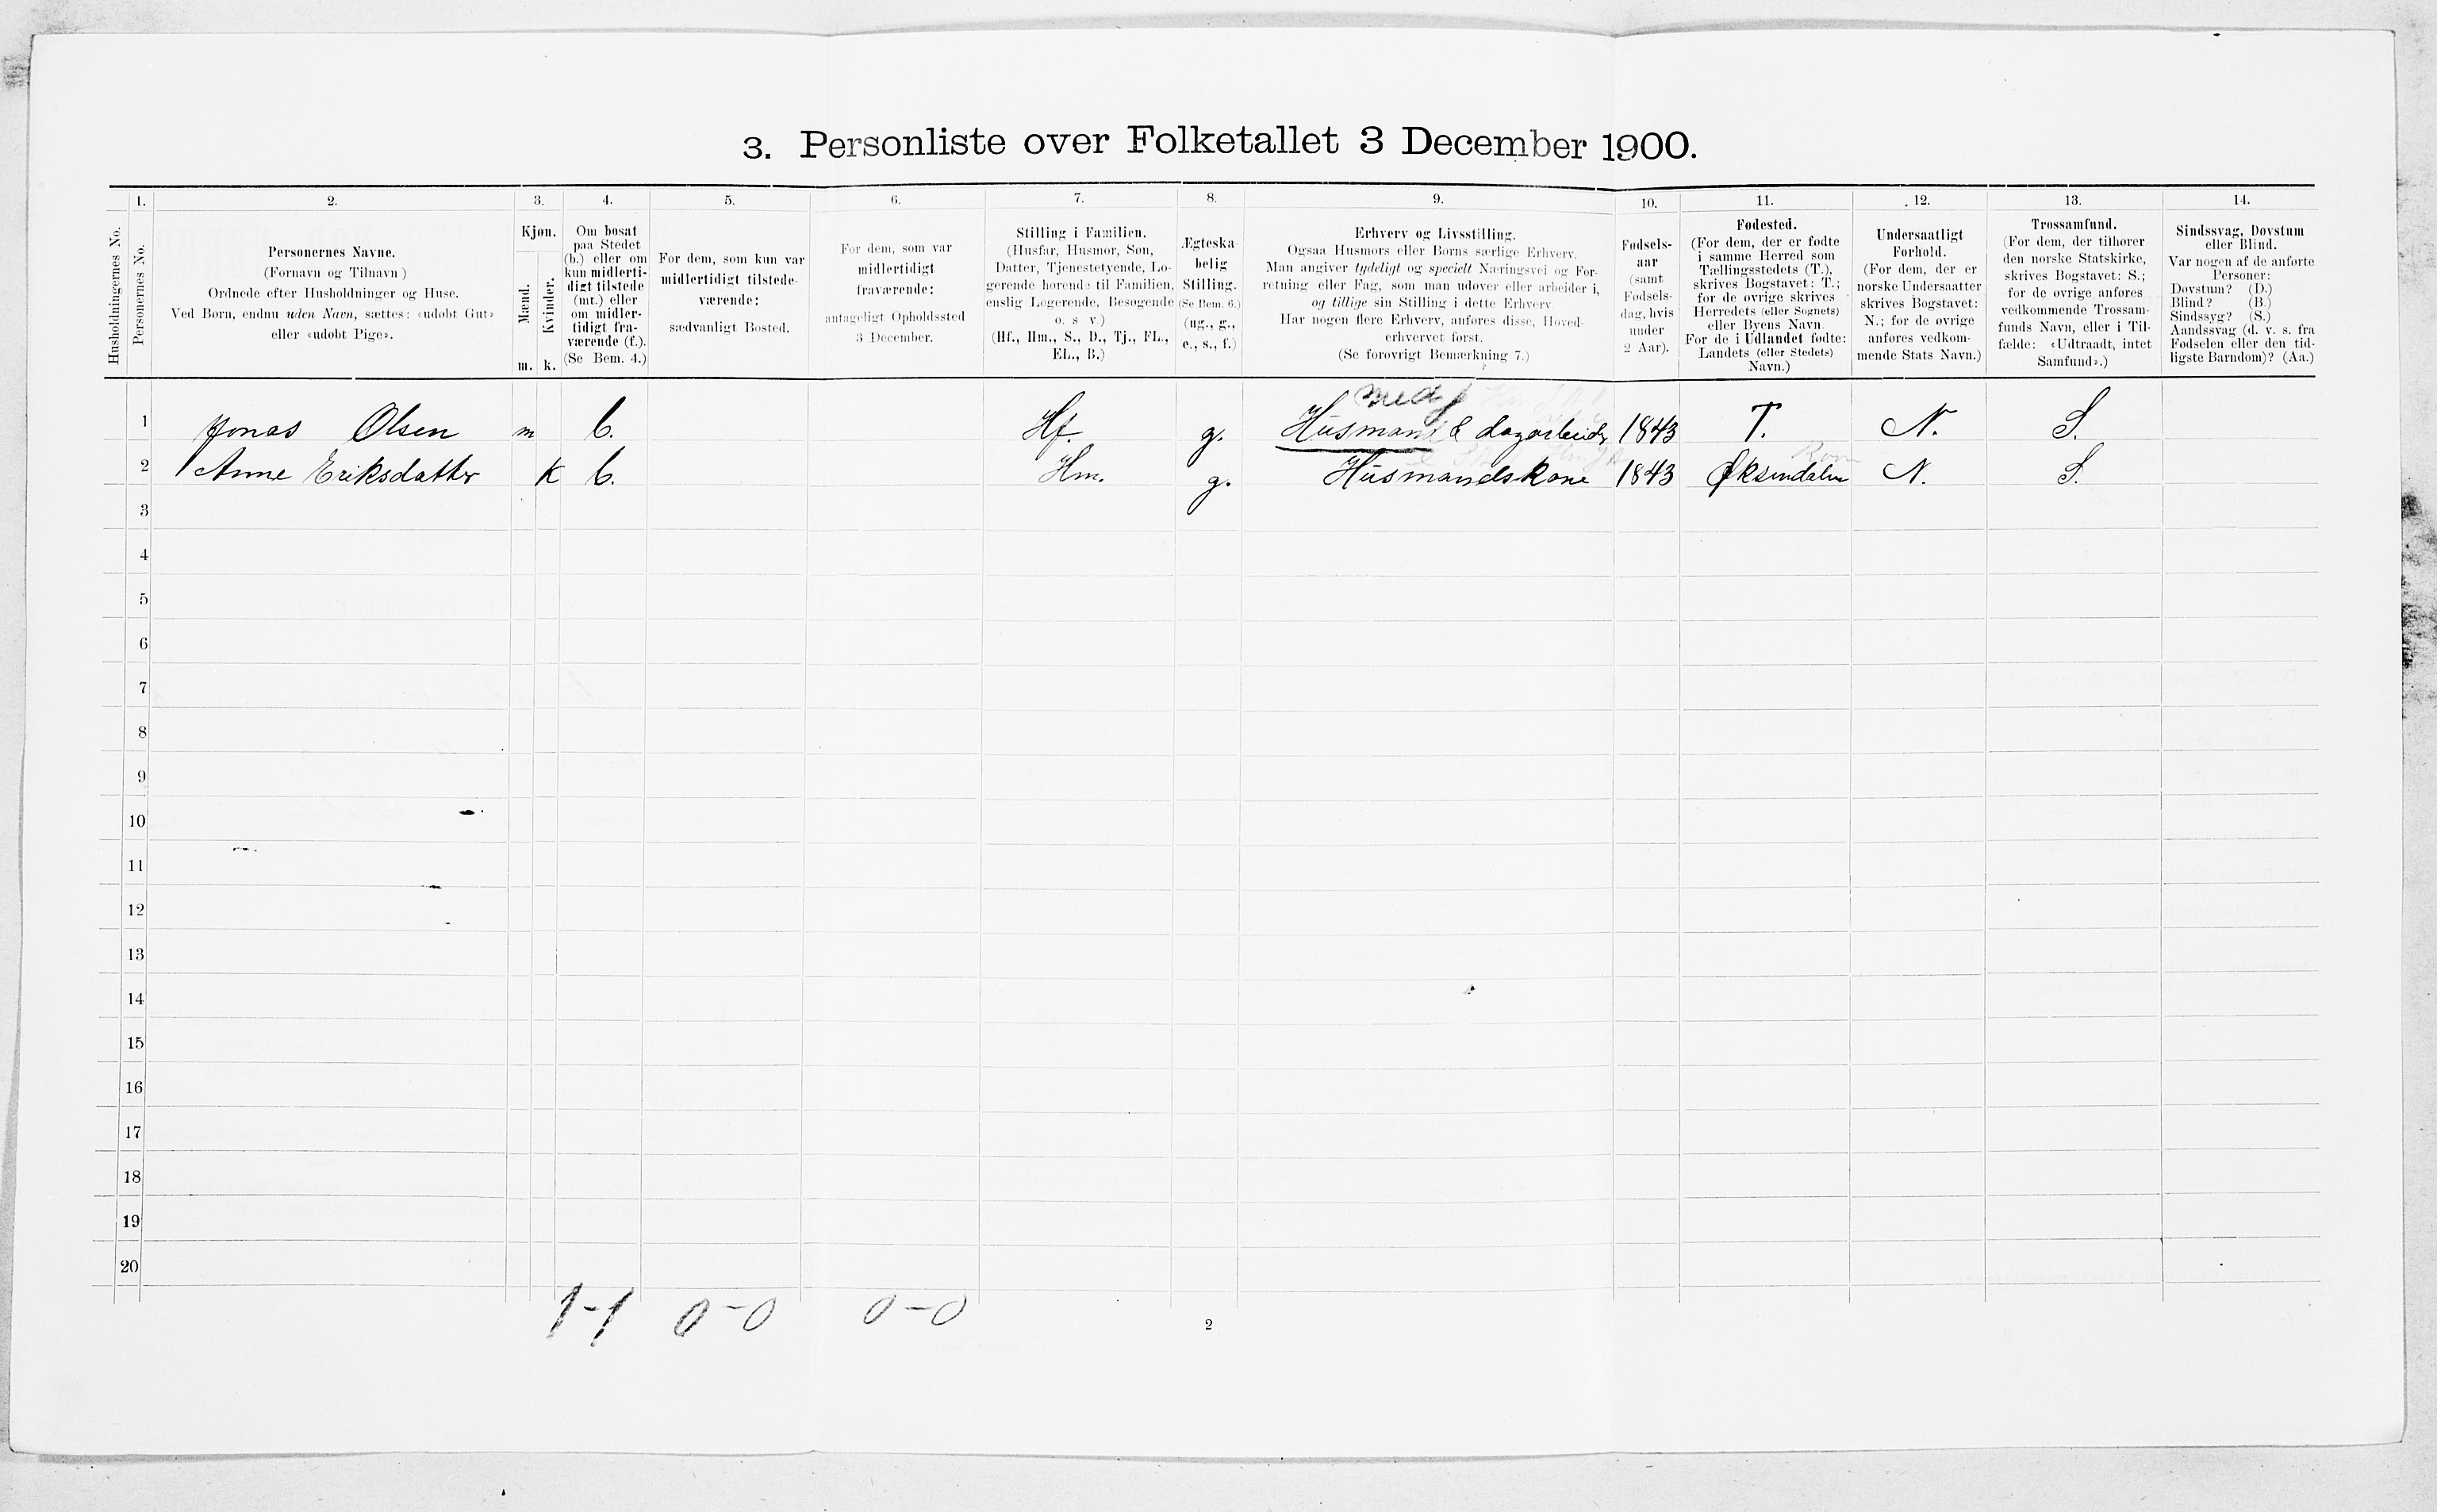 3. Personliste over Folketallet 3 December 1900.
1. 2. 3. 4. 5. 6. 7. 8. 9. 10. 11. 12. 13. 14.
Husholdningernes No.
Personernes No.
Personernes Navne.
(Fornavn og Tilnavn)
Ordnede efter Husholdninger og Huse.
Ved Børn, endnu uden Navn, sættes: «udøbt Gut»
eller «udøbt Pige».
Kjøn.
Mænd.
Kvinder.
m. k.
Om bosat
paa Stedet
(b.) eller om
kun midlerti-
digt tilstede
(mt.) eller
om midler-
tidigt fra-
værende (f.).
(Se Bem. 4.)
For dem, som kun var
midlertidigt tilstede-
værende:
sædvanligt Bosted.
For dem, som var
midlertidigt
fraværende:
antageligt Opholdssted
3 December.
Stilling i Familien.
(Husfar, Husmor, Søn,
Datter, Tjenestetyende, Lo-
gerende hørende til Familien,
enslig Logerende, Besøgende
o. s. v.)
(Hf., Hm., S., D., Tj., FL.,
EL., B.)
Ægteska-
belig
Stilling.
(Se Bem. 6.)
(ug., g.,
e., s., f.)
Erhverv og Livsstilling.
Ogsaa Husmors eller Børns særlige Erhverv.
Man angiver tydeligt og specielt Næringsvei og For-
retning eller Fag, som man udøver eller arbeider i,
og tillige sin Stilling i dette Erhverv
Har nogen flere Erhverv, anføres disse, Hoved-
erhvervet først.
(Se forøvrigt Bemærkning 7.)
Fødsels-
aar
(samt
Fødsels-
dag, hvis
under
2 Aar).
Fødested.
(For dem, der er fødte
i samme Herred som
Tællingsstedets (T.),
skrives Bogstavet: T.;
for de øvrige skrives
Herredets (eller Sognets)
eller Byens Navn
For de i Udlandet fødte:
Landets (eller Stedets)
Navn.)
Undersaatligt
Forhold.
(For dem, der er
norske Undersaatter
skrives Bogstavet:
N.; for de øvrige
anføres vedkom-
mende Stats Navn.)
Trossamfund.
(For dem, der tilhører
den norske Statskirke,
skrives Bogstavet: S.;
for de øvrige anføres
vedkommende Trossam-
funds Navn, eller i Til-
fælde: «Udtraadt, intet
Samfund».)
Sindssvag, Døvstum
eller Blind.
Var nogen af de anførte
Personer:
Døvstum? (D.)
Blind? (B.)
Sindssyg? (S.)
Aandssvag (d. v. s. fra
Fødselen eller den tid-
ligste Barndom)? (Aa.)
med j
1 Jonas Olsen m b. Hf. g. Husmand & dagarbeider 1843 T. N. S.
2 Anne Eriksdatter K b. Hm. g. Husmandskone 1843 Øksendalen N. S.
3
4
5
6
7
8
9
10
11
12
13
14
15
16
17
18
19
20
1-1 0-0 0-0
2